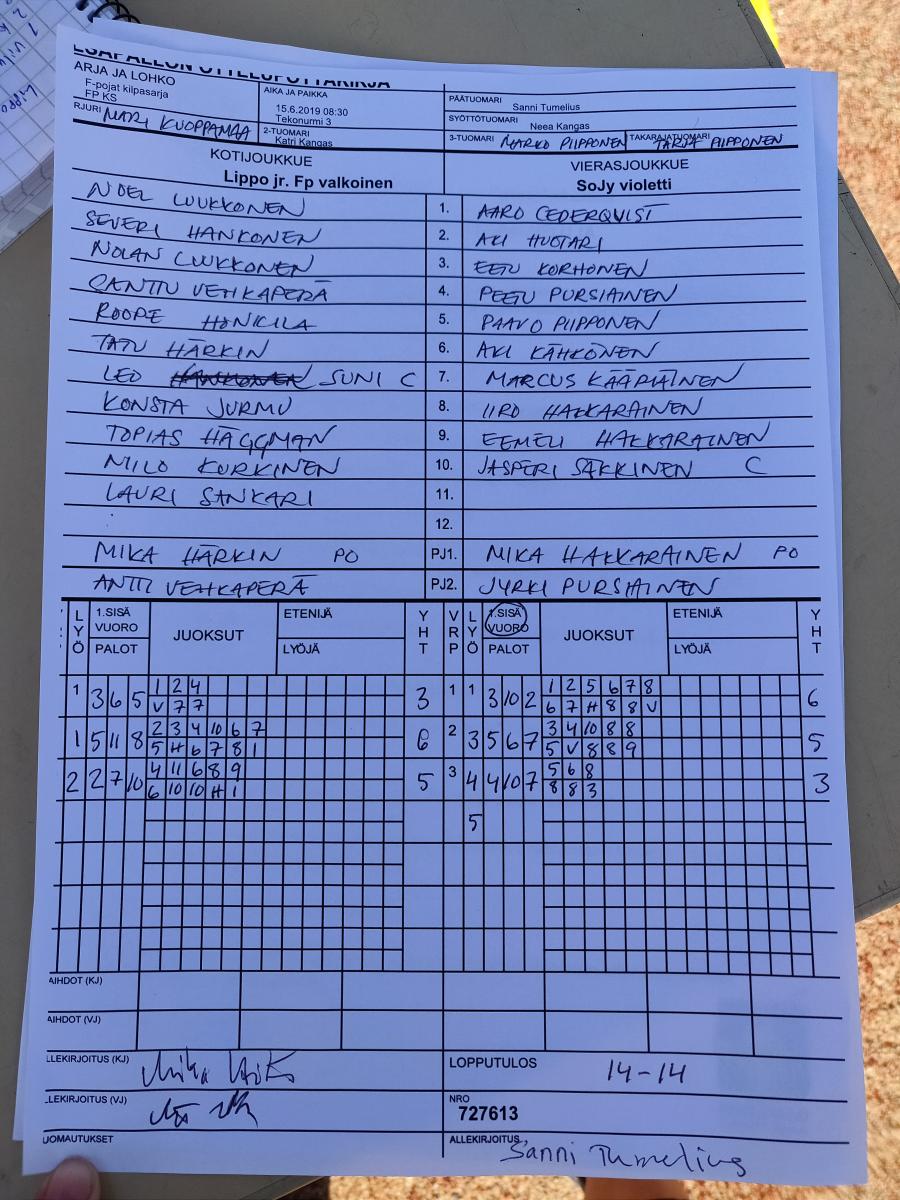 ESÄPALLON OTTELUPÖYTÄKIRJA
ARJA JA LOHKO
F-pojat kilpasarja
FP KS
AIKA JA PAIKKA
15.6.2019 08:30
Tekonurmi 3
PÄÄTUOMARI Sanni Tumelius
SYÖTTÖTUOMARI Neea Kangas
RJURI MARI KUOPPAMAA
2-TUOMARI
Katri Kangas
3-TUOMARI MARKO PIIPPONEN TAKARAJATUOMARI TARJA PIIPPONEN
KOTIJOUKKUE VIERASJOUKKUE
Lippo jr. Fp valkoinen SoJy violetti
NOEL LUUKKONEN 1. AARO CEDERQVIST
SEVERI HANKONEN 2. AKI HUOTARI
NOLAN LUUKKONEN 3. EETU KORHONEN
SANTTU VEHKAPERÄ 4. PEETU PURSIAINEN
ROOPE HONKILA 5. PAAVO PIIPPONEN
TATU HÄRKIN 6. AKI KÄHKÖNEN
LEO HANKONEN SUNI C 7. MARCUS KÄÄRIÄINEN
KONSTA JURMU 8. IIRO HAKKARAINEN
TOPIAS HÄGGMAN 9. EEMELI HAKKARAINEN
MILO KURKINEN 10. JASPERI SÄKKINEN C
LAURI SANKARI 11.
12.
MIKA HÄRKIN PO PJ1. MIKA HAKKARAINEN PO
ANTTI VEHKAPERÄ PJ2. JYRKI PURSIAINEN
LYÖ 1.SISÄ VUORO PALOT JUOKSUT ETENIJÄ LYÖJÄ YHT VRP LYÖ 1.SISÄ VUORO PALOT JUOKSUT ETENIJÄ LYÖJÄ YHT
1 3 6 5 1 2 4 3 1 1 3 10 2 1 2 5 6 7 8 6
V 7 7 6 7 H 8 8 V
1 5 11 8 2 3 4 10 6 7 6 2 3 5 6 7 3 4 10 8 8 5
5 H 6 7 8 1 5 V 8 8 9
2 2 7 10 4 11 6 8 9 5 3 4 4 10 7 5 6 8 3
6 10 10 H 1 8 8 3
5
AIHDOT (KJ)
AIHDOT (VJ)
LLEKIRJOITUS (KJ) LOPPUTULOS 14-14
LLEKIRJOITUS (VJ) NRO
727613
UOMAUTUKSET ALLEKIRJOITUS Sanni Tumelius